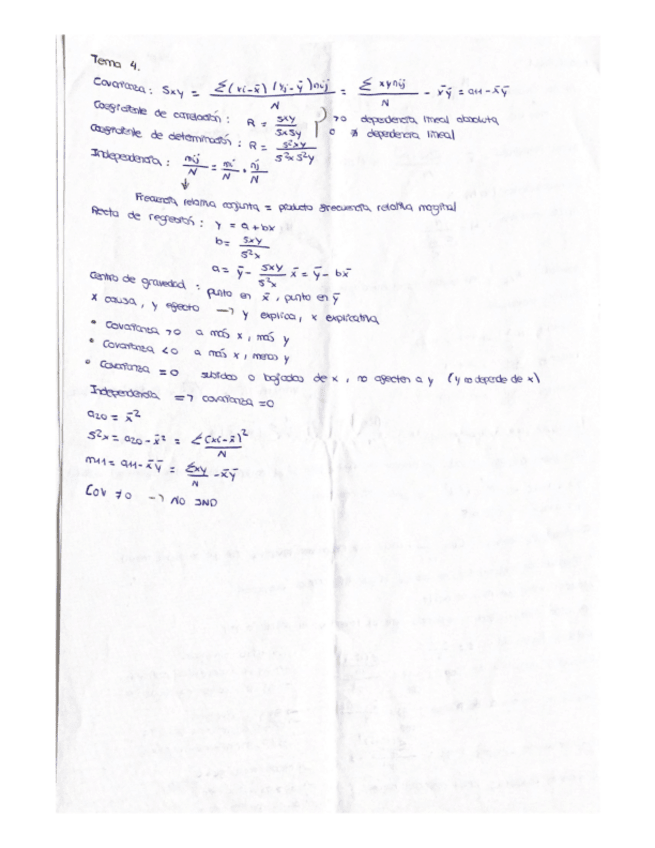 Tema 4.
Covarianza: Sxy = Σ(xi-x̄)(yi-ȳ)nij / N = Σ xynij / N - x̄ȳ = a11 - x̄ȳ
Coeficiente de correlación: R = Sxy / SxSy >0 dependencia lineal absoluta
Coeficiente de determinación: R = S²xy / S²xS²y 0 dependencia lineal
Independencia: nij / N = ni / N · nj / N
↓
Frecuencia relativa conjunta = producto frecuencia relativa marginal
Recta de regresión: y = a + bx
b = Sxy / S²x
a = ȳ - Sxy / S²x x̄ = ȳ - bx̄
Centro de gravedad: punto en x̄, punto en ȳ
x causa, y efecto → y explica, x explicativa
• Covarianza >0 a más x, más y
• Covarianza <0 a más x, menos y
• Covarianza = 0 subidas o bajadas de x, no afecten a y (y no depende de x)
Independencia => covarianza = 0
a20 = x̄²
S²x = a20 - x̄² = Σ(xi-x̄)² / N
m11 = a11 - x̄ȳ = Σxy / N - x̄ȳ
Cov ≠0 → NO IND